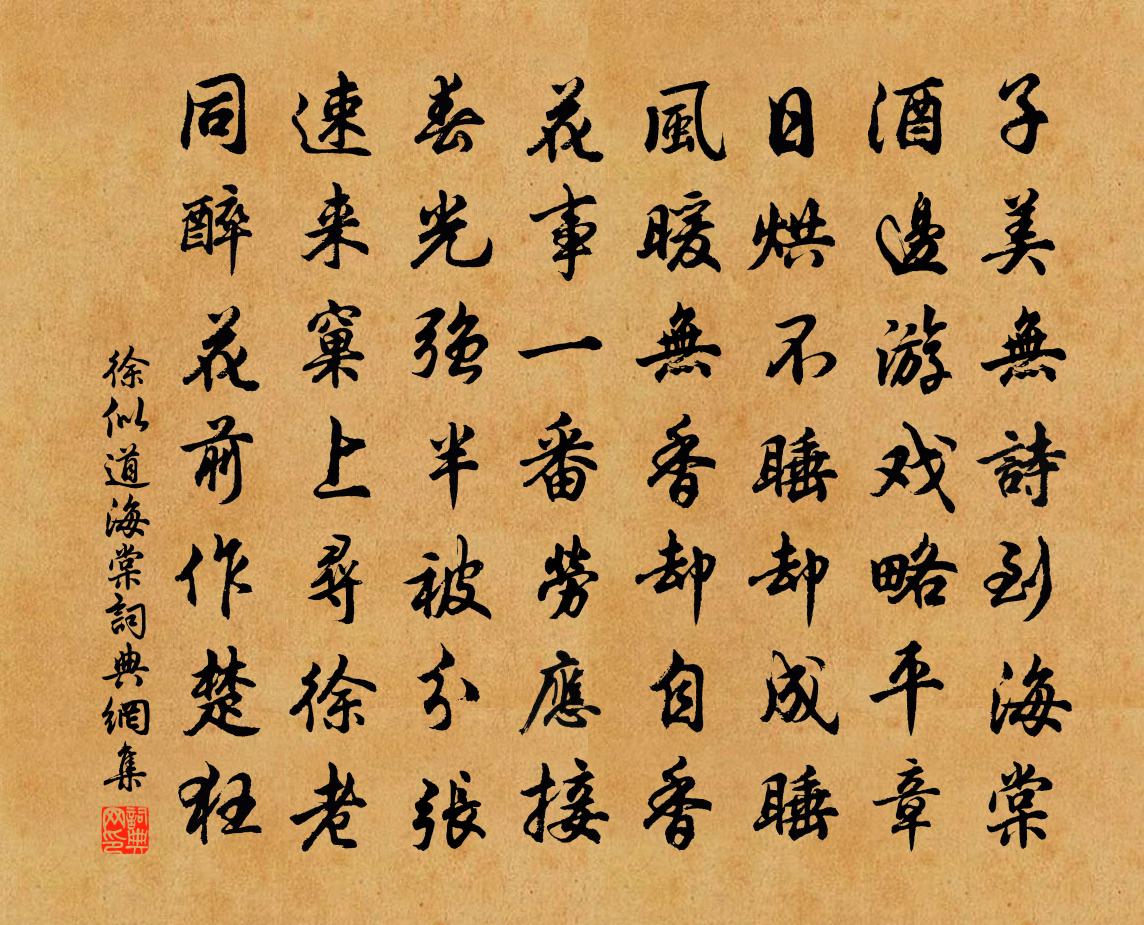 子美無詩到海棠
酒邊游戏略平章
日烘不睡却成睡
風暖無香却自香
花事一番勞應接
春光强半被分張
速来窠上尋徐老
同醉花前作楚狂
徐似道海棠詞典網集
詞典网印